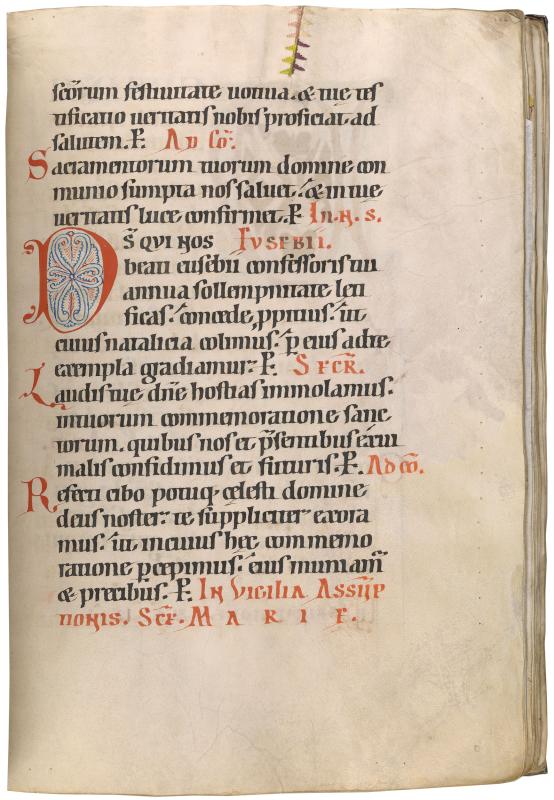 scõrum festiuitate uotiua. & tue ues
tificatio ueritatis nobis proficiat ad
salutem. P. AD CÕ.
Sacramentorum tuorum domine com
munio sumpta nos saluet. & in tue
ueritatis luce confirmet. P. IN. N. S.
DS̄ QUI NOS EUSEBII.
beati eusebii confessoris tui
annua sollempnitate leti
ficas. concede, ppitius. ut
cuius natalicia colimus. p eius ad te
exempla gradiamur. P. SECR̃.
Laudis tue dñe hostias immolamus.
in tuorum commemoratione sanc
torum. quibus nos et p̃sentibus exui
malis confidimus et futuris. P. AD CÕ.
Refecti cibo potuq celesti domine
deus noster. te suppliciter exora
mus. ut in cuius hec commemo
ratione pcepimus. eius muniam̃
& precibus. P. IN VIGILIA ASSUP
TIONIS. SCE. MARIE.